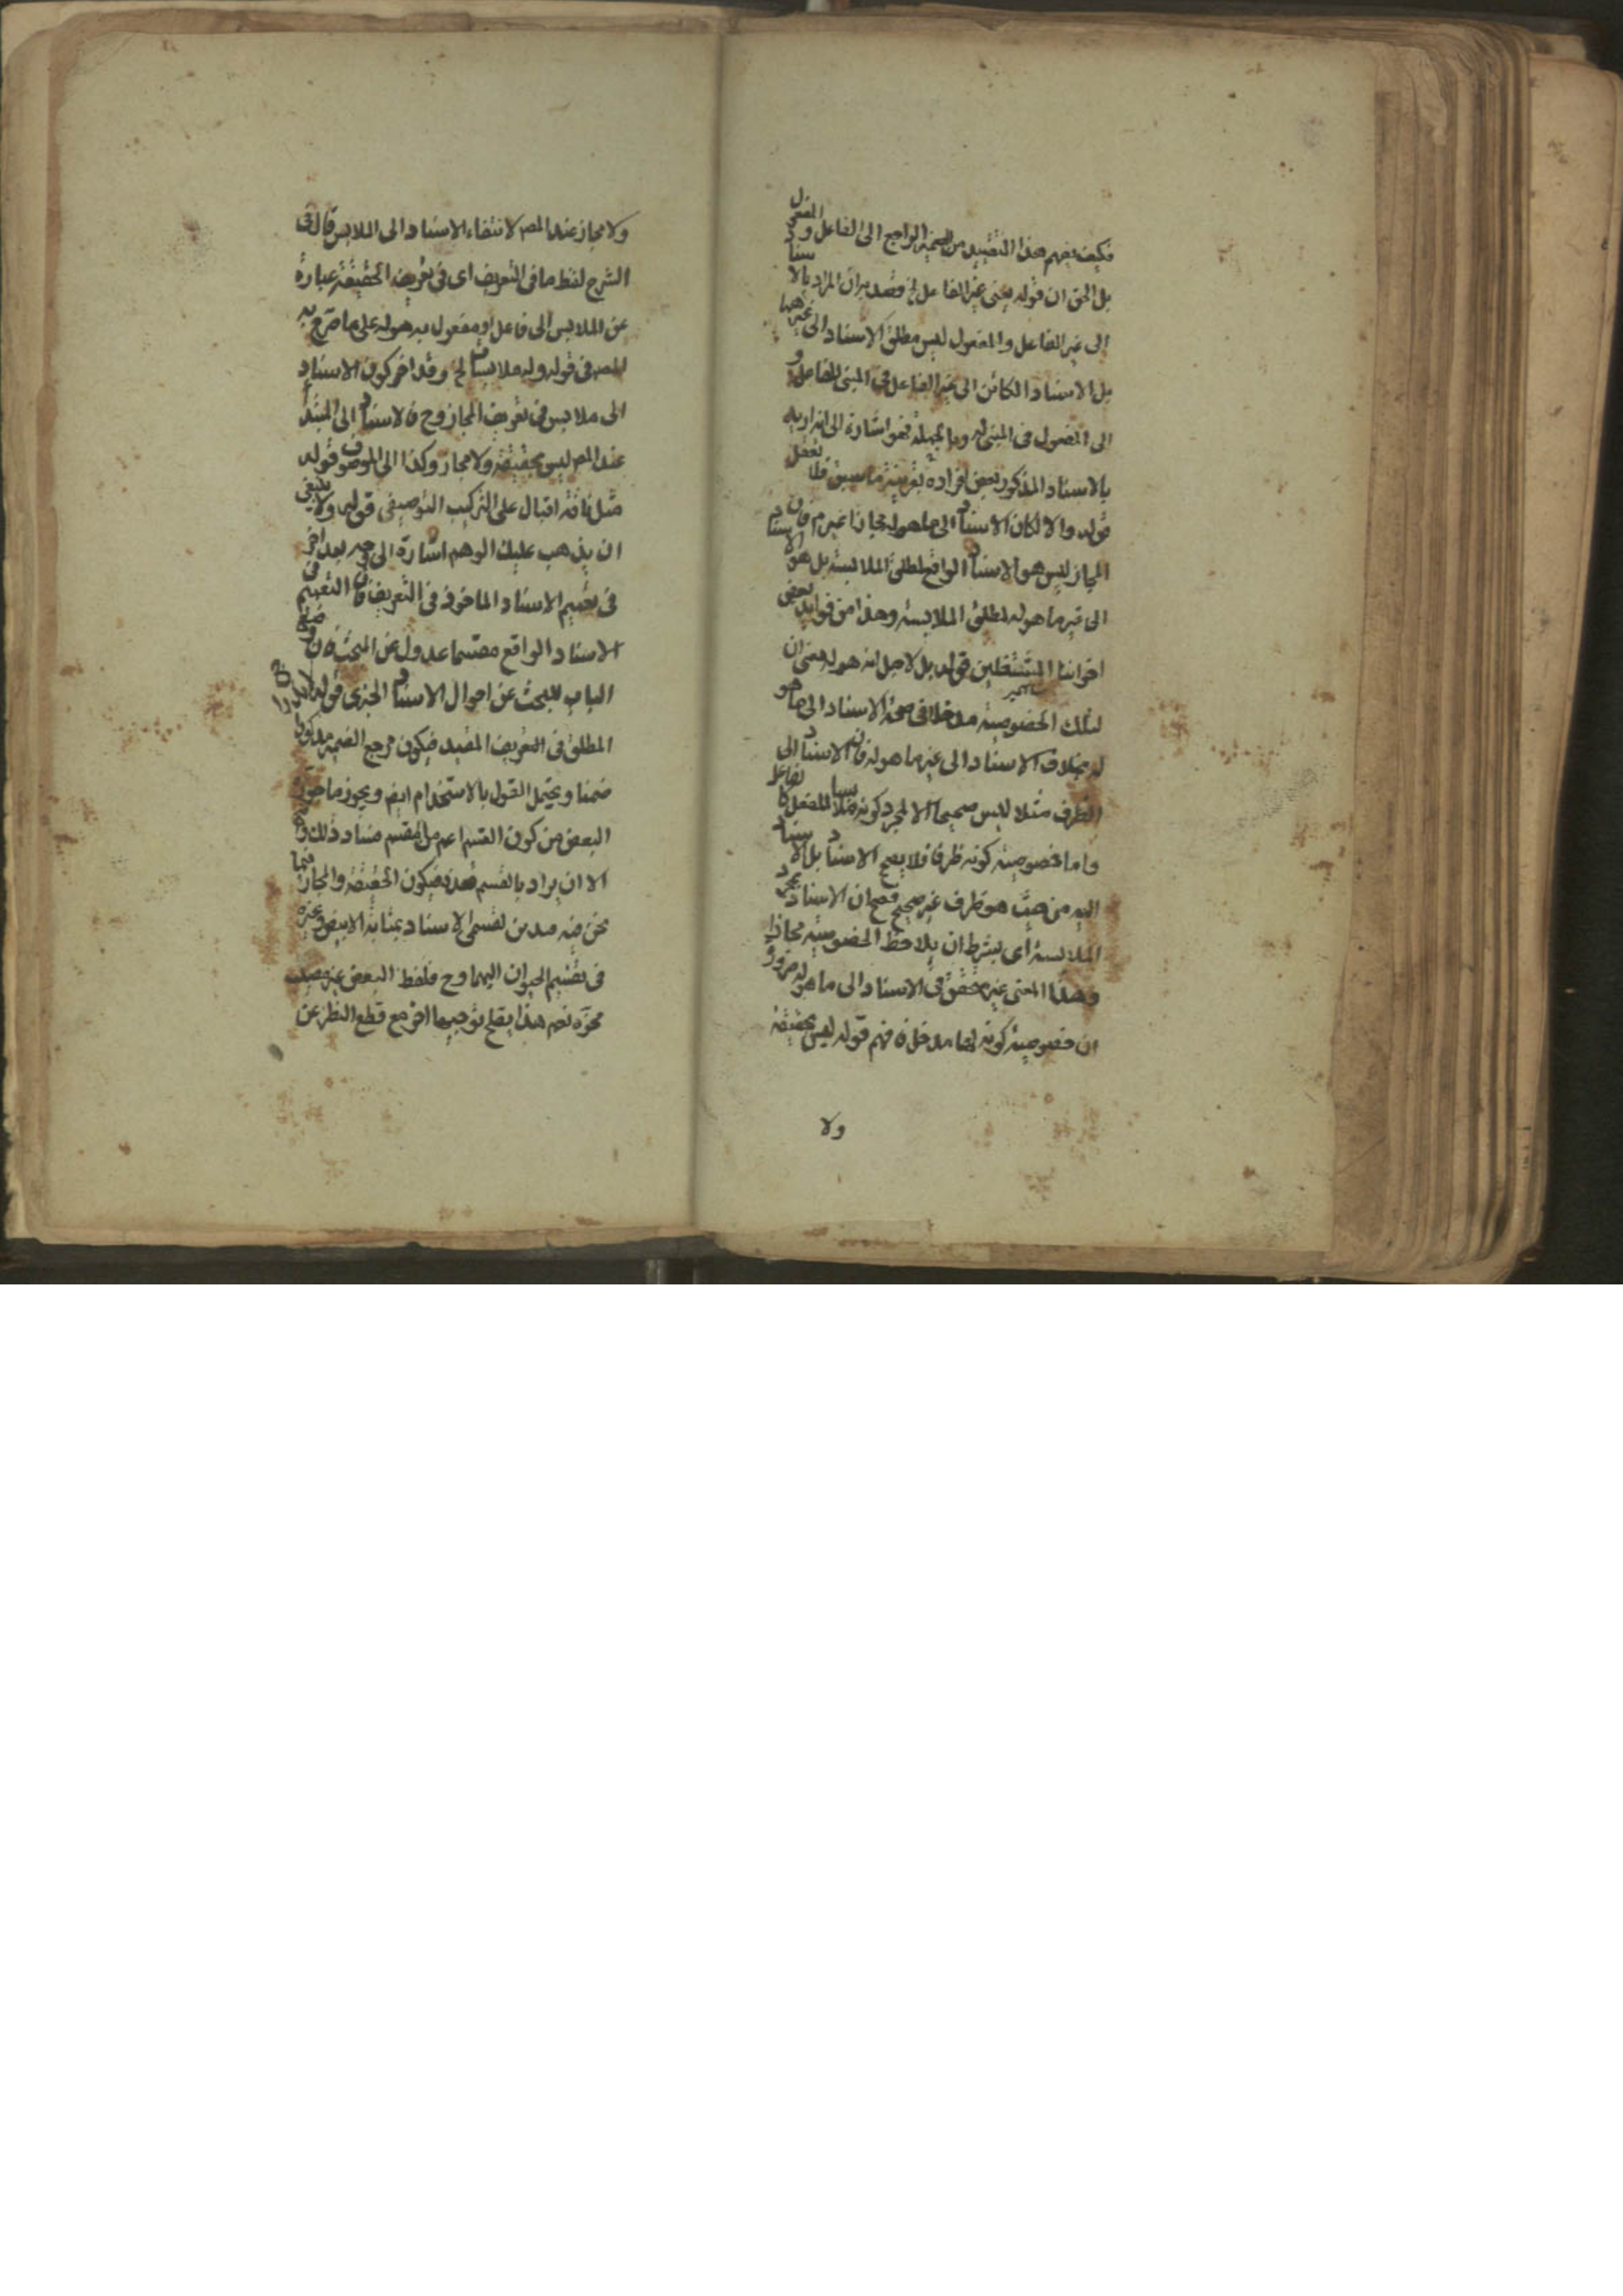 فكيف يفهم هذا التقييد من الضمير الراجع الى الفاعل والمفعول
بل الحق ان قوله يعنى غير الفاعل الخ وقصد به ان المراد بالاسناد
الى غير الفاعل والمفعول ليس مطلق الاسناد الى غيرهما
بل الاسناد الكائن الى غير الفاعل فى المبنى للفاعل و
الى المفعول فى المبنى له وبالجملة فهو اشارة الى انه اريد
بالاسناد المذكور بعض افراده بقرينة ما سبق فلا تغفل
قوله والا لكان الاسناد الى ما هو له مجازا غير م فان اسناد
المجاز ليس هو الاسناد الواقع لمطلق الملابسة بل هو الا
الى غير ما هو له لمطلق الملابسة وهذا من فوايد بعض
اخواننا المشتغلين قوله بل لاجل انه هو له يعنى ان
لتلك الخصوصية مدخلا فى صحة الاسناد الى ما هو
له بخلاف الاسناد الى غير ما هو له فان الاسناد الى
الظرف مثلا ليس صحيحا الا لمجرد كونه ملابسا للفعل كالفاعل
واما خصوصية كونه ظرفا فلا يصح الاسناد بل الاسناد
اليه من حيث هو ظرف غير صحيح فصح ان الاسناد لمجرد
الملابسة اى يشترط ان يلاحظ الخصوصية مجازا
وهذا المعنى غير متحقق فى الاسناد الى ما هو له ضرورة
ان خصوصية كونه لها مدخل فافهم قوله ليس بحقيقة
ولا
ولا مجاز عند المصـ لانتفاء الاسناد الى الملابس قال فى
الشرح لفظ ما فى التعريف اى فى تعريف الحقيقة عبارة
عن الملابس الى فاعل او مفعول به هو له على ما صرح به
المصـ فى قوله وله ملابسات الخ وقد اخر كون الاسناد
الى ملابس فى تعريف المجاز وح فالاسناد الى المبتدأ
عند المصـ ليس بحقيقة ولا مجاز وكذا الى الموصوف قوله
مثل ناقة اقبال على التركيب التوصيفى قوله ولا ينبغى
ان يذهب عليك الوهم اشارة الى وجه بعد اخر
فى تعميم الاسناد الماخوذ فى التعريف فان التعميم فى
الاسناد الواقع مقسما عدول عن المبحث فان وضع
الباب للبحث عن احوال الاسناد الخبرى قوله لدلالة
المطلق فى التعريف المقيد فيكون مرجع الضمير مذكورا
ضمنا ويحتمل القول بالاستخدام ايضـ ويجوز ما جوزه
البعض من كون القسم اعم من المقسم فساد ذلك
الا ان يراد بالقسم فيكون الحقيقة والمجاز فيما
نحن فيه من تقسيم الاسناد بمثابة الابيض وغيره
فى تقسيم الحيوان اليهما وح فلفظ البعض غير مصيب
محزه نعم هذا يصلح توجيها اخر مع قطع النظر عن